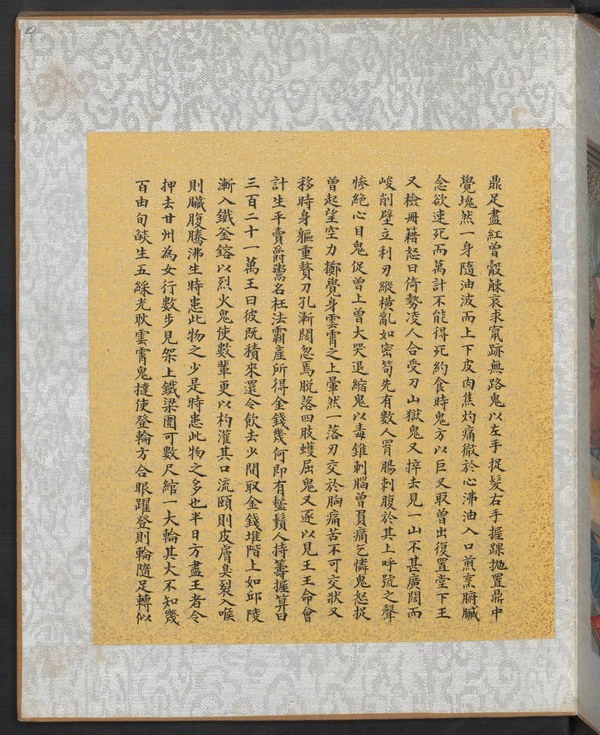 鼎足盡紅曾觳觫哀求竄跡無路鬼以左手捉髮右手握踝拋置鼎中
覺塊然一身隨油波而上下皮肉焦灼痛徹於心沸油入口煎烹腑臟
念欲速死而萬計不能得死約食時鬼方以巨叉取曾出復置堂下王
又檢冊籍怒曰倚勢凌人合受刀山獄鬼又捽去見一山不甚廣闊而
峻削壁立利刃縱橫亂如密筍先有數人罥腸刺腹於其上呼號之聲
慘絕心目鬼促曾上曾大哭退縮鬼以毒錐刺腦曾負痛乞憐鬼怒捉
曾起望空力擲覺身雲霄之上暈然一落刃交於胸痛苦不可交狀又
移時身軀重贅刀孔漸闊忽焉脫落四肢蠖屈鬼又逐以見王王命會
計生平賣爵鬻名枉法霸產所得金錢幾何即有鬚人持籌握算曰
三百二十一萬王曰彼既積來還令飲去少間取金錢堆階上如邱陵
漸入鐵釜鎔以烈火鬼使數輩更以杓灌其口流頤則皮膚臭裂入喉
則臟腹騰沸生時患此物之少是時患此物之多也半日方盡王者令
押去甘州為女行數步見架上鐵梁圍可數尺綰一大輪其大不知幾
百由旬燄生五綵光耿雲霄鬼撻使登輪方合眼躍登則輪隨足轉似